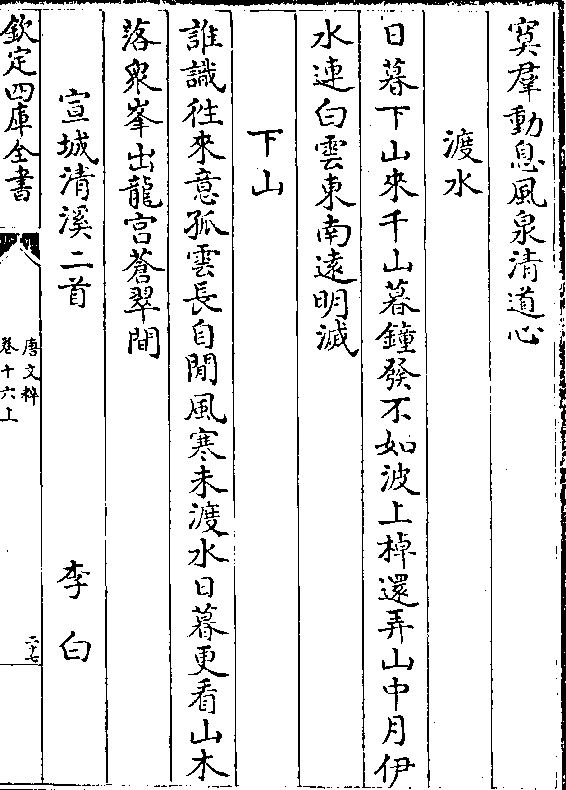 冥羣動息風泉清道心
渡水
日暮下山來千山暮鐘發不如波上棹還弄山中月伊
水連白雲東南遠明滅
下山
誰識徃來意孤雲長自閒風寒未渡水日暮更看山木
落衆峯出龍宫蒼翠間
宣城清溪二首 李白
欽定四庫全書
唐文粹
卷十六上
二十七